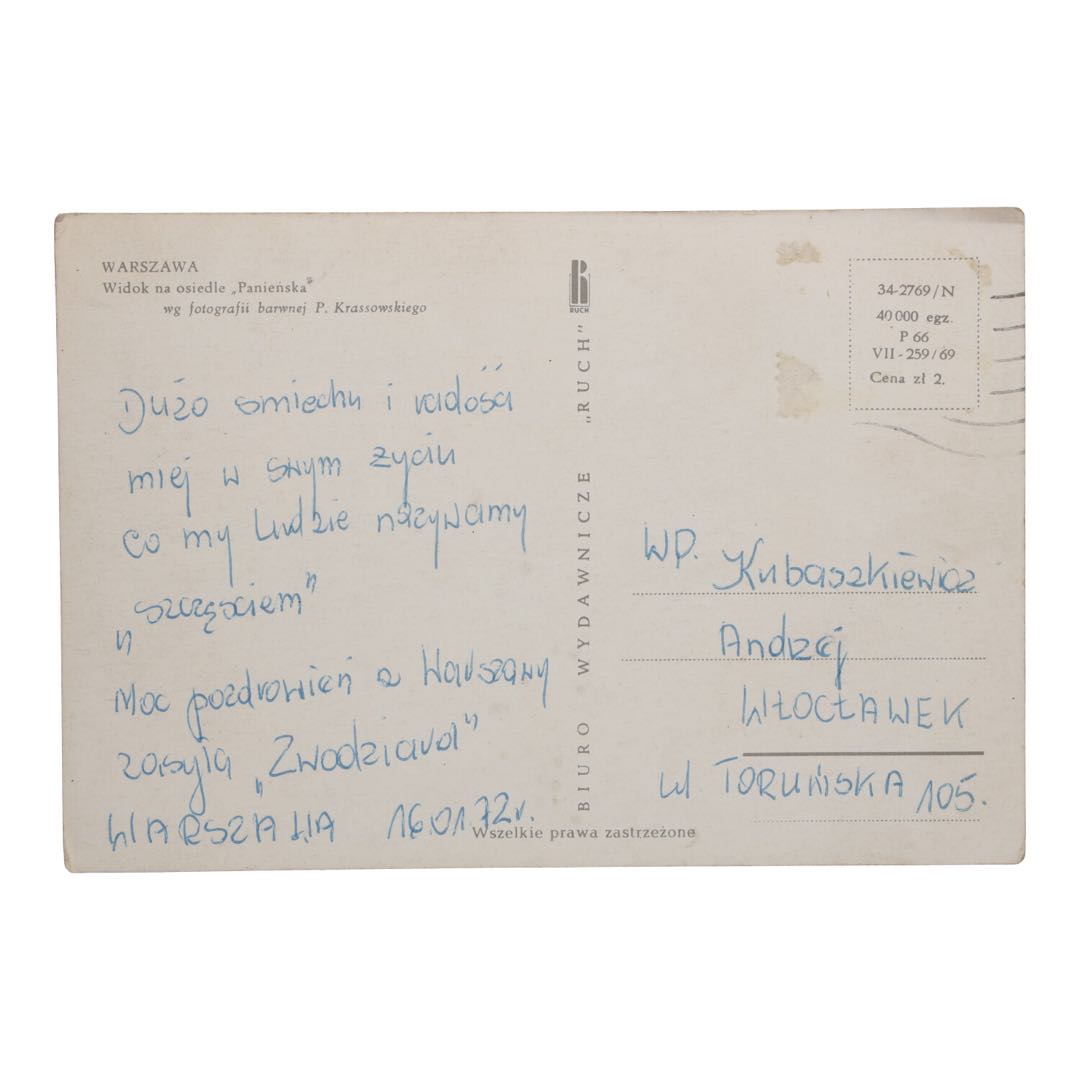 WARSZAWA
Widok na osiedle „Panieńska"
wg fotografii barwnej P. Krassowskiego
Dużo smiechu i radości
miej w swym życiu
co my ludzie nazywamy
„szczęsciem"
Moc pozdrowień z Warszawy
zasyła „Zwodziara"
WARSZAWA 16.01.72r.
RUCH
BIURO WYDAWNICZE „RUCH"
34-2769/N
40 000 egz.
P 66
VII-259/69
Cena zł 2.
WP. Kubaszkiewicz
Andrzej
WŁOCŁAWEK
ul TORUŃSKA 105.
Wszelkie prawa zastrzeżone